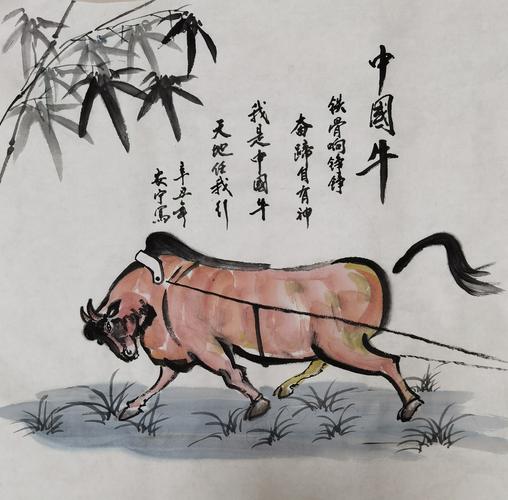 中國牛
铁骨响铮铮
奋蹄自有神
我是中國牛
天地任我引
辛丑年
安宁写